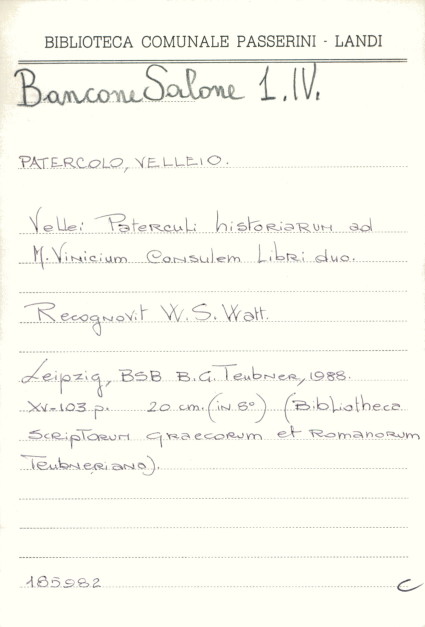 BIBLIOTECA COMUNALE PASSERINI - LANDI
Bancone Salone 1.IV.
PATERCOLO, VELLEIO.
Vellei Paterculi historiarum ad
M. Vinicium Consulem Libri duo.
Recognovit W. S. Watt.
Leipzig, BSB B.G. Teubner, 1988.
XV-103 p. 20 cm. (in 8°) (Bibliotheca
scriptorum graecorum et romanorum
Teubneriana).
185982 C